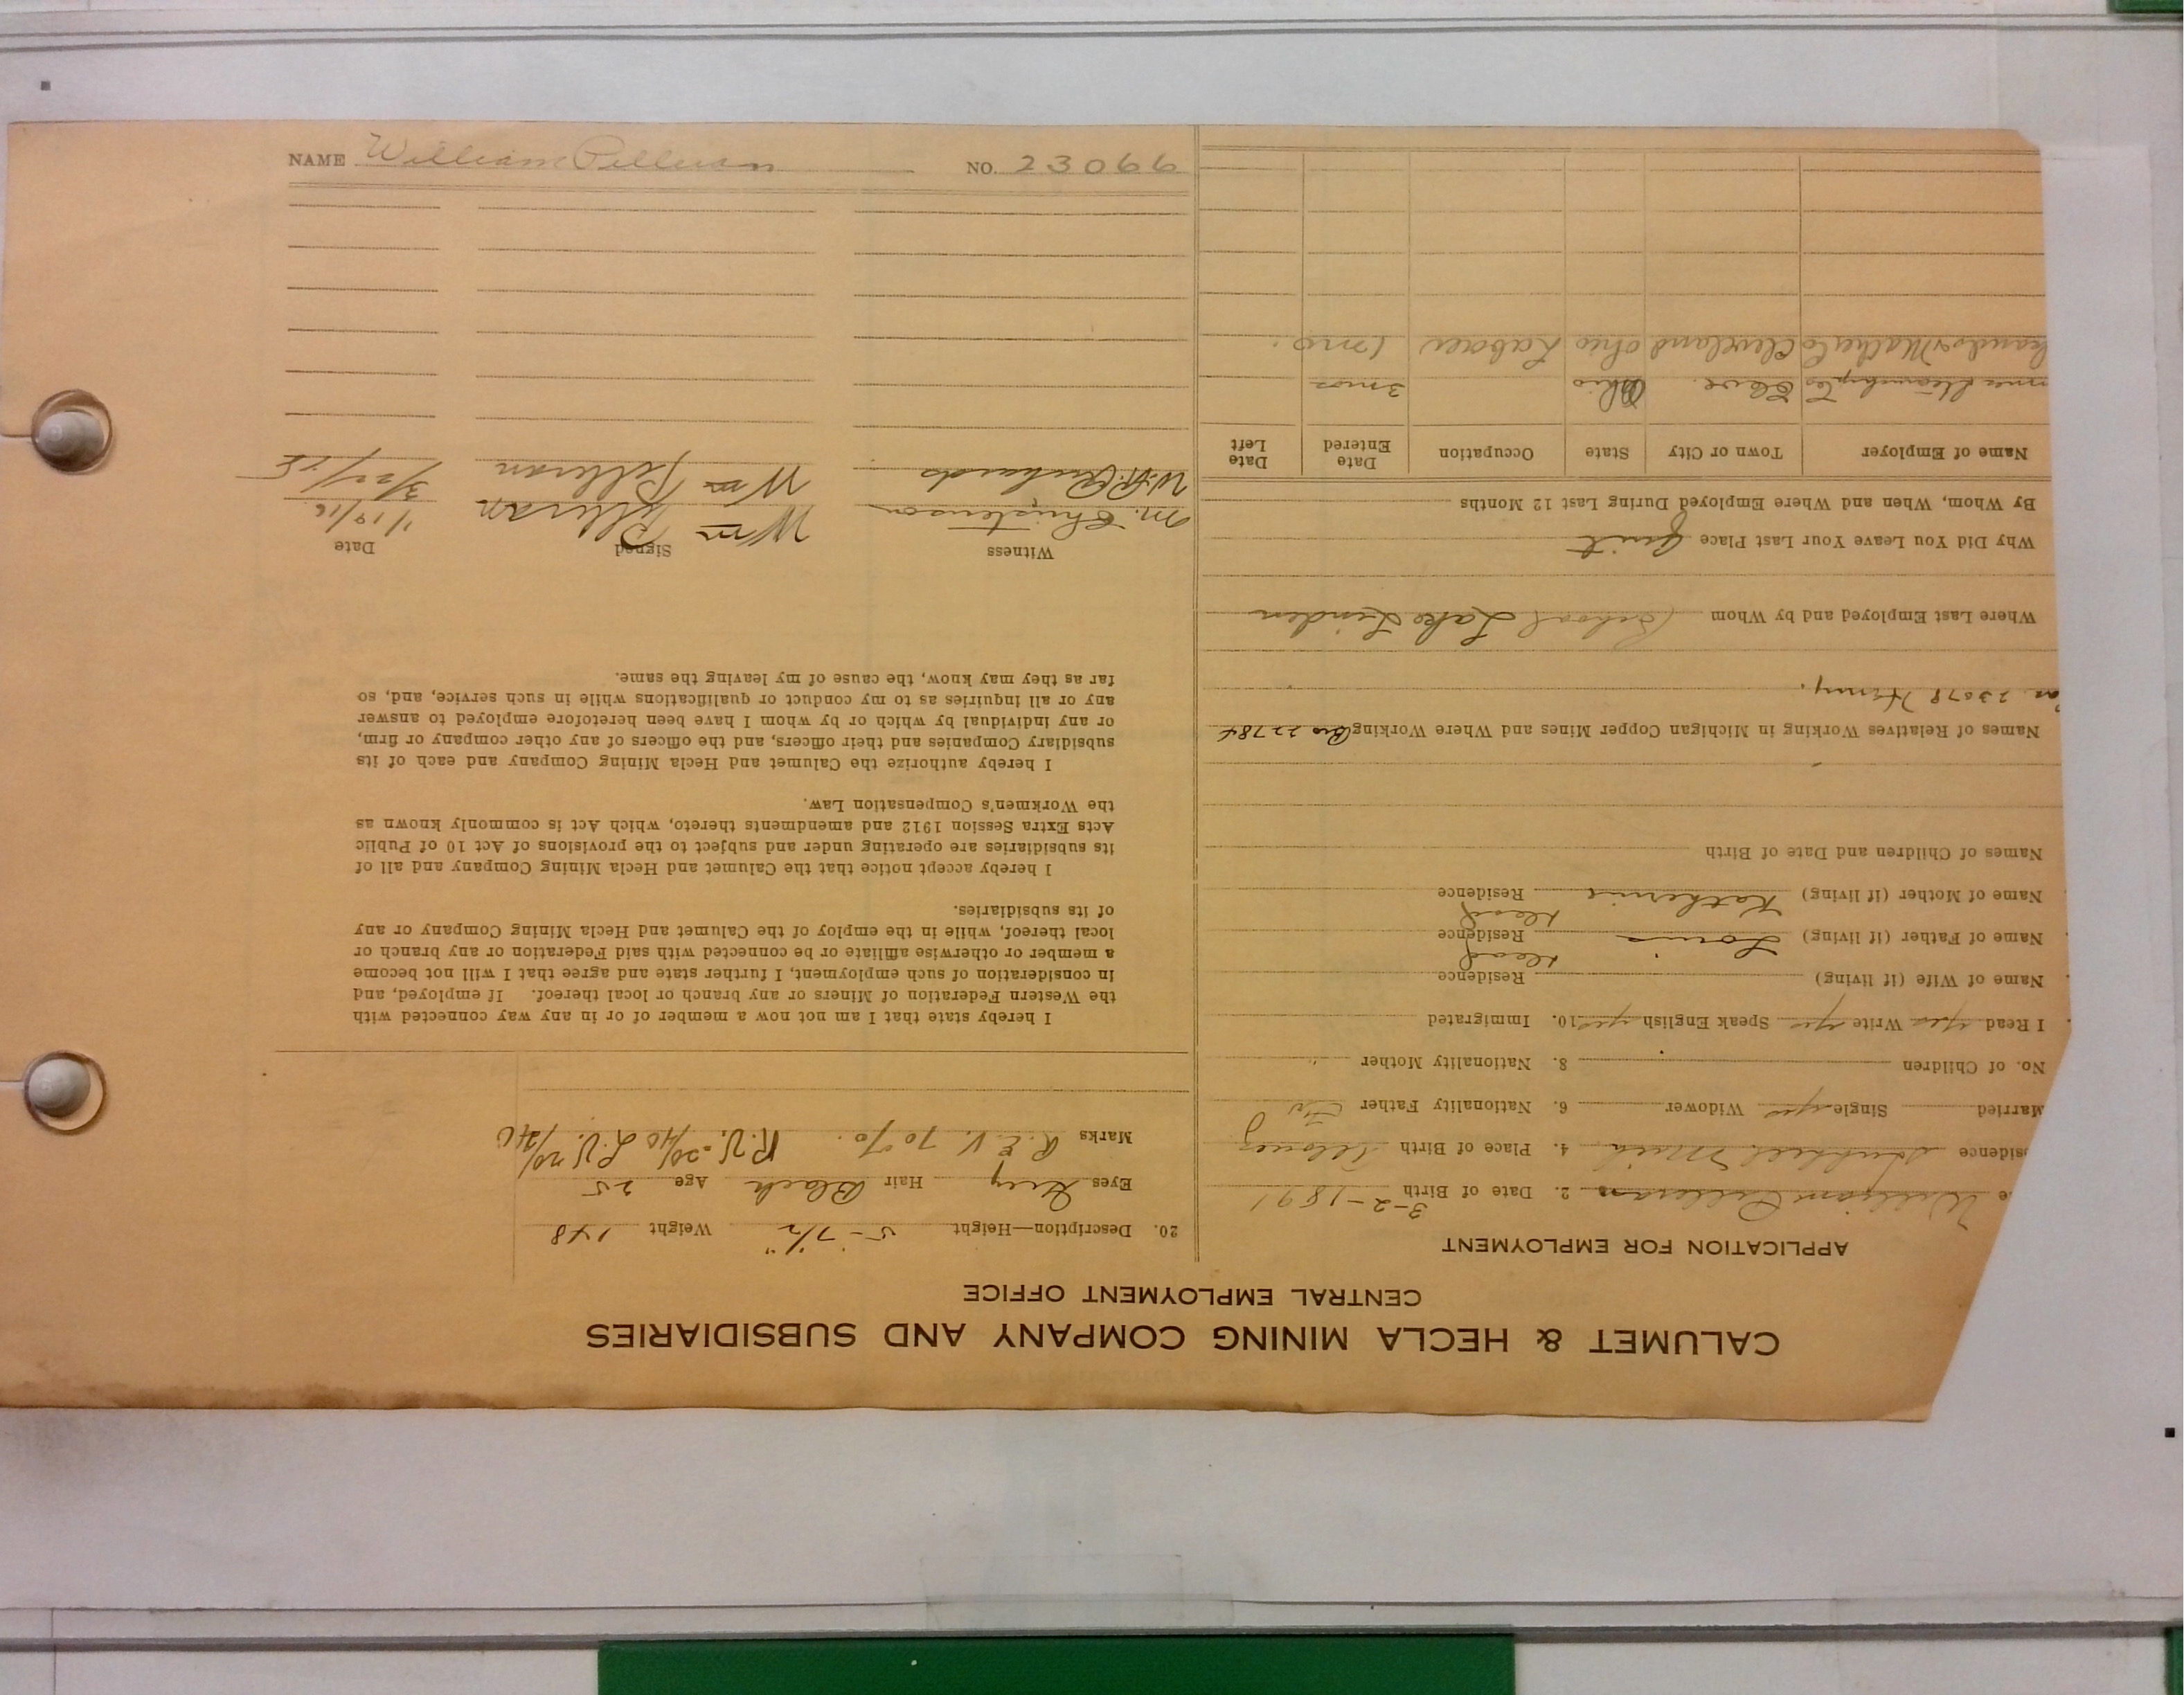 CALUMET & HECLA MINING COMPANY AND SUBSIDIARIES
CENTRAL EMPLOYMENT OFFICE
APPLICATION FOR EMPLOYMENT
e William 2. Date of Birth 3-2-1891
sidence 4. Place of Birth
Married Single yes Widower 6. Nationality Father
No. of Children 8. Nationality Mother
I Read yes Write yes Speak English yes 10. Immigrated
Name of Wife (if living) Residence
Name of Father (if living) Louis Residence dead
Name of Mother (if living) Katherine Residence dead
Names of Children and Date of Birth
Names of Relatives Working in Michigan Copper Mines and Where Working Bro 22784
23078 Henry.
Where Last Employed and by Whom School Lake Linden
Why Did You Leave Your Last Place quit
By Whom, When and Where Employed During Last 12 Months
Name of Employer Town or City State Occupation Date Entered Date Left
Steamship Co Cleve. Ohio 3 mos
Mather Co Cleveland Ohio Labor 1 mo.
20. Description—Height 5-7 1/2" Weight 148
Eyes Grey Hair Black Age 25
Marks R.E.V. 70%. R.V. 20/40 L.V. 20/40
I hereby state that I am not now a member of or in any way connected with
the Western Federation of Miners or any branch or local thereof. If employed, and
in consideration of such employment, I further state and agree that I will not become
a member or otherwise affiliate or be connected with said Federation or any branch or
local thereof, while in the employ of the Calumet and Hecla Mining Company or any
of its subsidiaries.
I hereby accept notice that the Calumet and Hecla Mining Company and all of
its subsidiaries are operating under and subject to the provisions of Act 10 of Public
Acts Extra Session 1912 and amendments thereto, which Act is commonly known as
the Workmen's Compensation Law.
I hereby authorize the Calumet and Hecla Mining Company and each of its
subsidiary Companies and their officers, and the officers of any other company or firm,
or any individual by which or by whom I have been heretofore employed to answer
any or all inquiries as to my conduct or qualifications while in such service, and, so
far as they may know, the cause of my leaving the same.
Witness Signed Date
M. Christenson Wm 1/19/16
W.H. Wm
NAME William NO. 23066